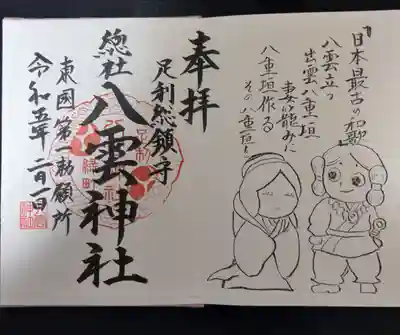 『日本最古の和歌』
八雲立つ
出雲八重垣
妻籠みに
八重垣作る
その八重垣を
奉拝
足利総鎮守
總社 八雲神社
東國第一勅願所
令和五年二月一日